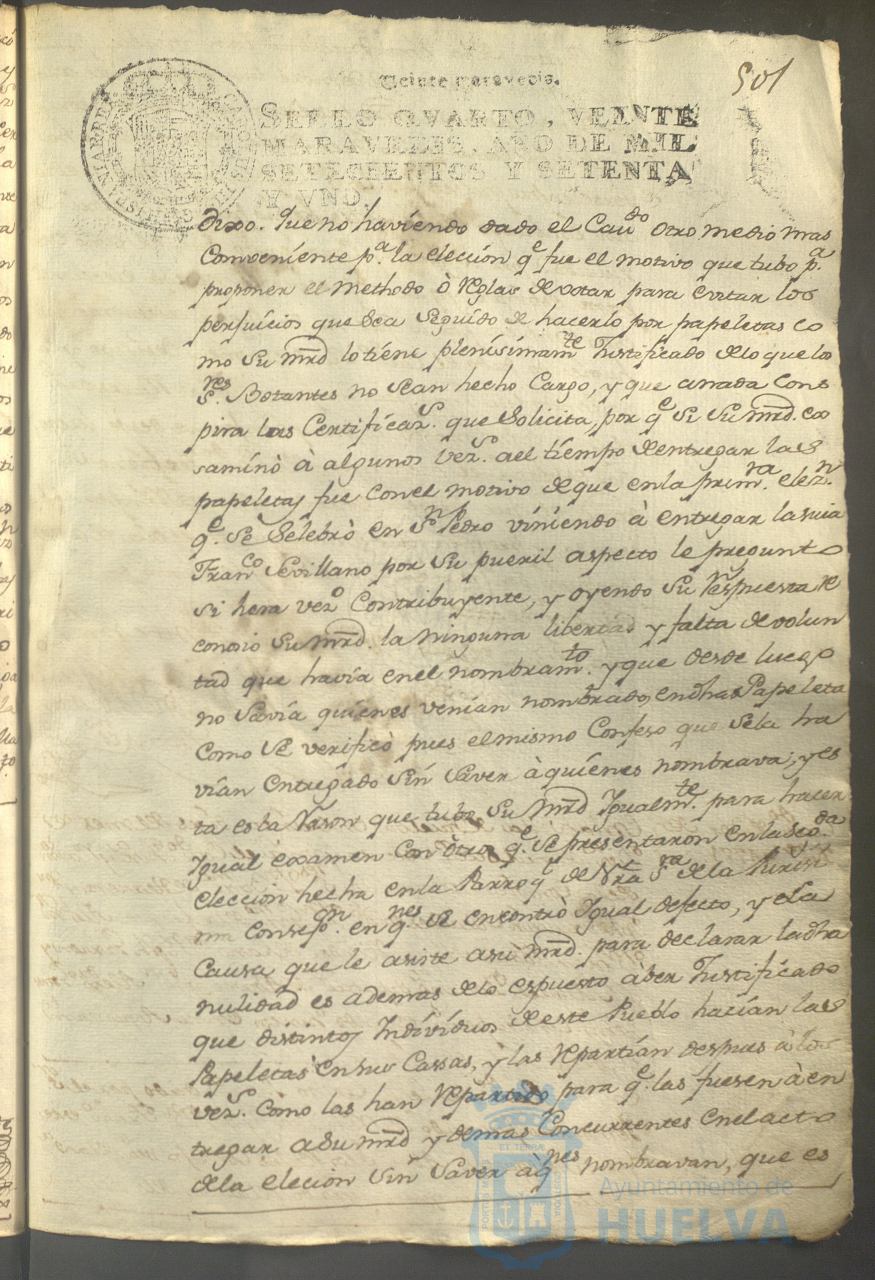 501
Veinte maravedis.
SELLO QVARTO, VEINTE
MARAVEDIS, AÑO DE MIL
SETECIENTOS Y SETENTA
Y VNO.
Dixo. Que no haviendo dado el Cavdo. otro medio mas
Conveniente pa. la eleccion qe. fue el motivo que tubo pa.
proponer el Methodo ò Reglas de votar para evitar los
perjuicios que sea seguido de hacerlo por papeletas co
mo su mrd lo tiene plenisimamte. Justificado de lo que los
Sres. Botantes no sean hecho Cargo, y que anada Cons
pira las Certificazs. que Solicita, por qe. si su mrd. ex
saminò à algunos vezs. ael tiempo de entregar las
papeletas fue con el motivo de que en la primra. elezn.
qe. se Selebrò en Sn. Pedro viniendo à entregar la suia
Franco. Sevillano por su pueril aspecto le pregunto
si hera vezo. Contribuyente, y oyendo su Respuesta re
conosio su mrd. la ninguna libertad y falta de volun
tad que havia en el nombramto. y que desde luego
no Savia quienes venian nombrados en dhas Papeleta
Como se verificò pues el mismo Confeso que se la ha
vian entregado sin saver à quienes nombrava; y es
ta es la Rason que tubo su mrd Igualmte. para hacer
Igual examen con otros qe. se presentaron en la segda.
eleccion hecha en la Parroqa. de Nra. Sra. de la Purisi
ma Consepn. en qnes. se encontrò Igual defecto, y la
Causa que le asiste asu mrd. para declarar la dha
nulidad es ademas de lo espuesto aber Justificado
que distintos Individuos de este Pueblo hacian las
Papeletas en sus Cassas, y las Repartian despues à los
vezs. como las han Repartido para qe. las fuesen à en
tregar asu mrd y demas Concurrentes en el acto
de la elecion sin saver aqnes nombravan, que es
Ayuntamiento de
HUELVA